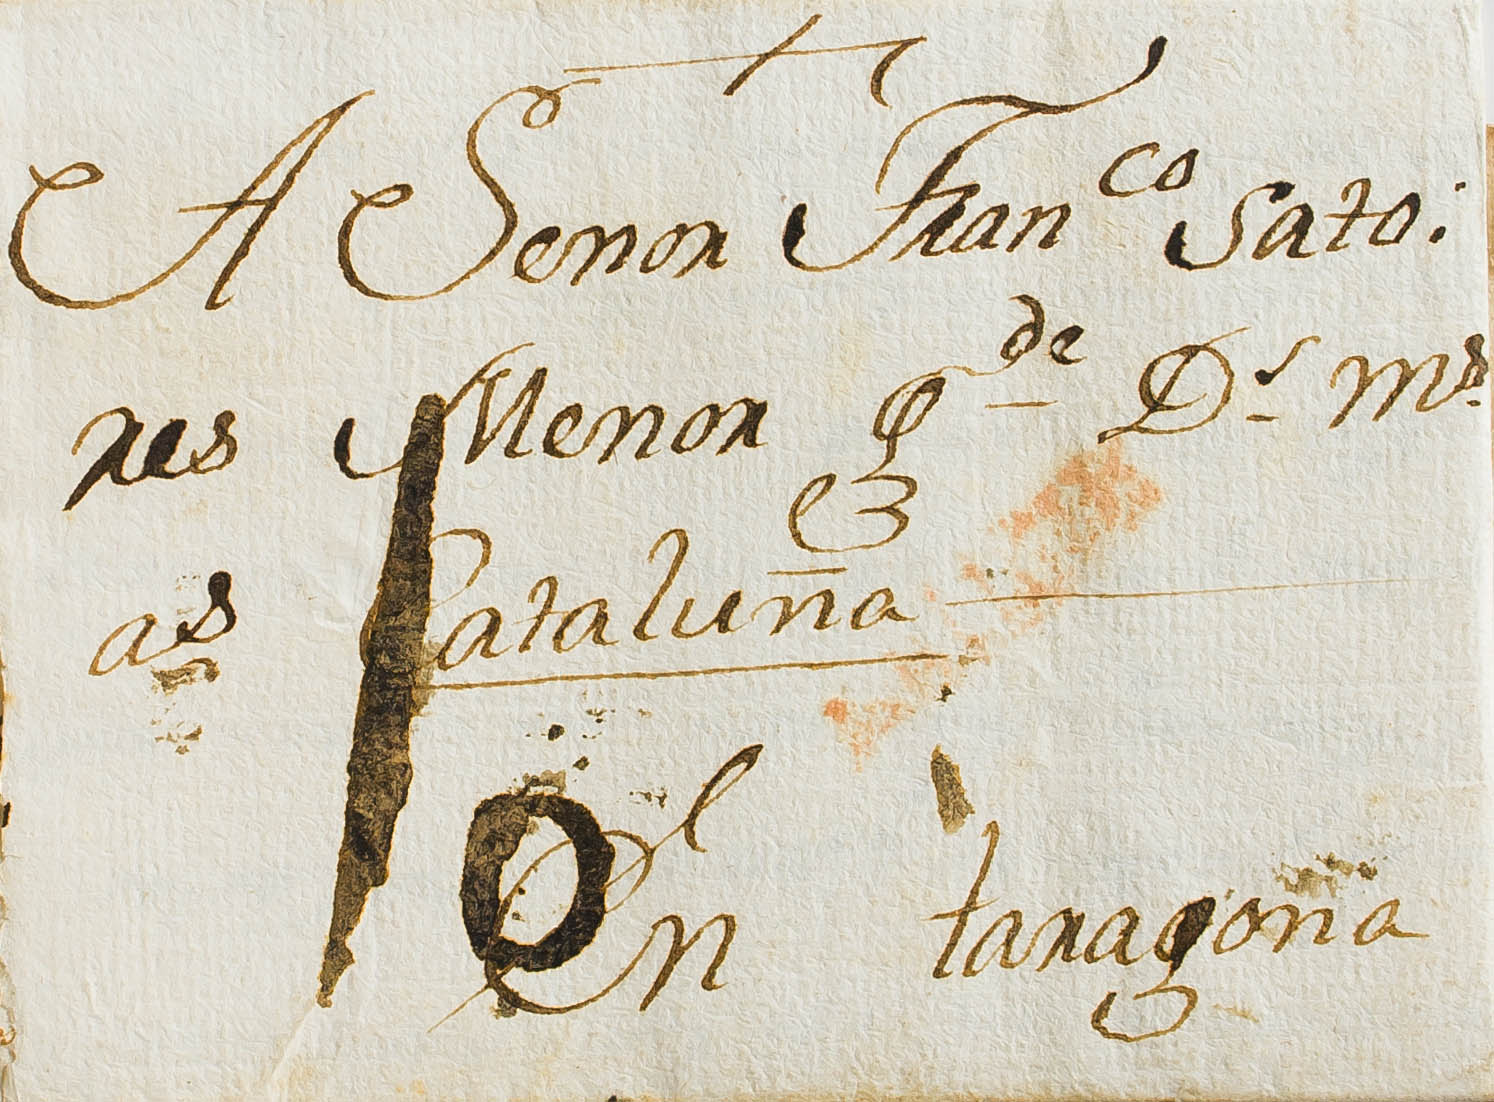 A Señor Fran^co Sato:
res Menor g^de D^s m^s
a^s Cataluña
10
En taragona